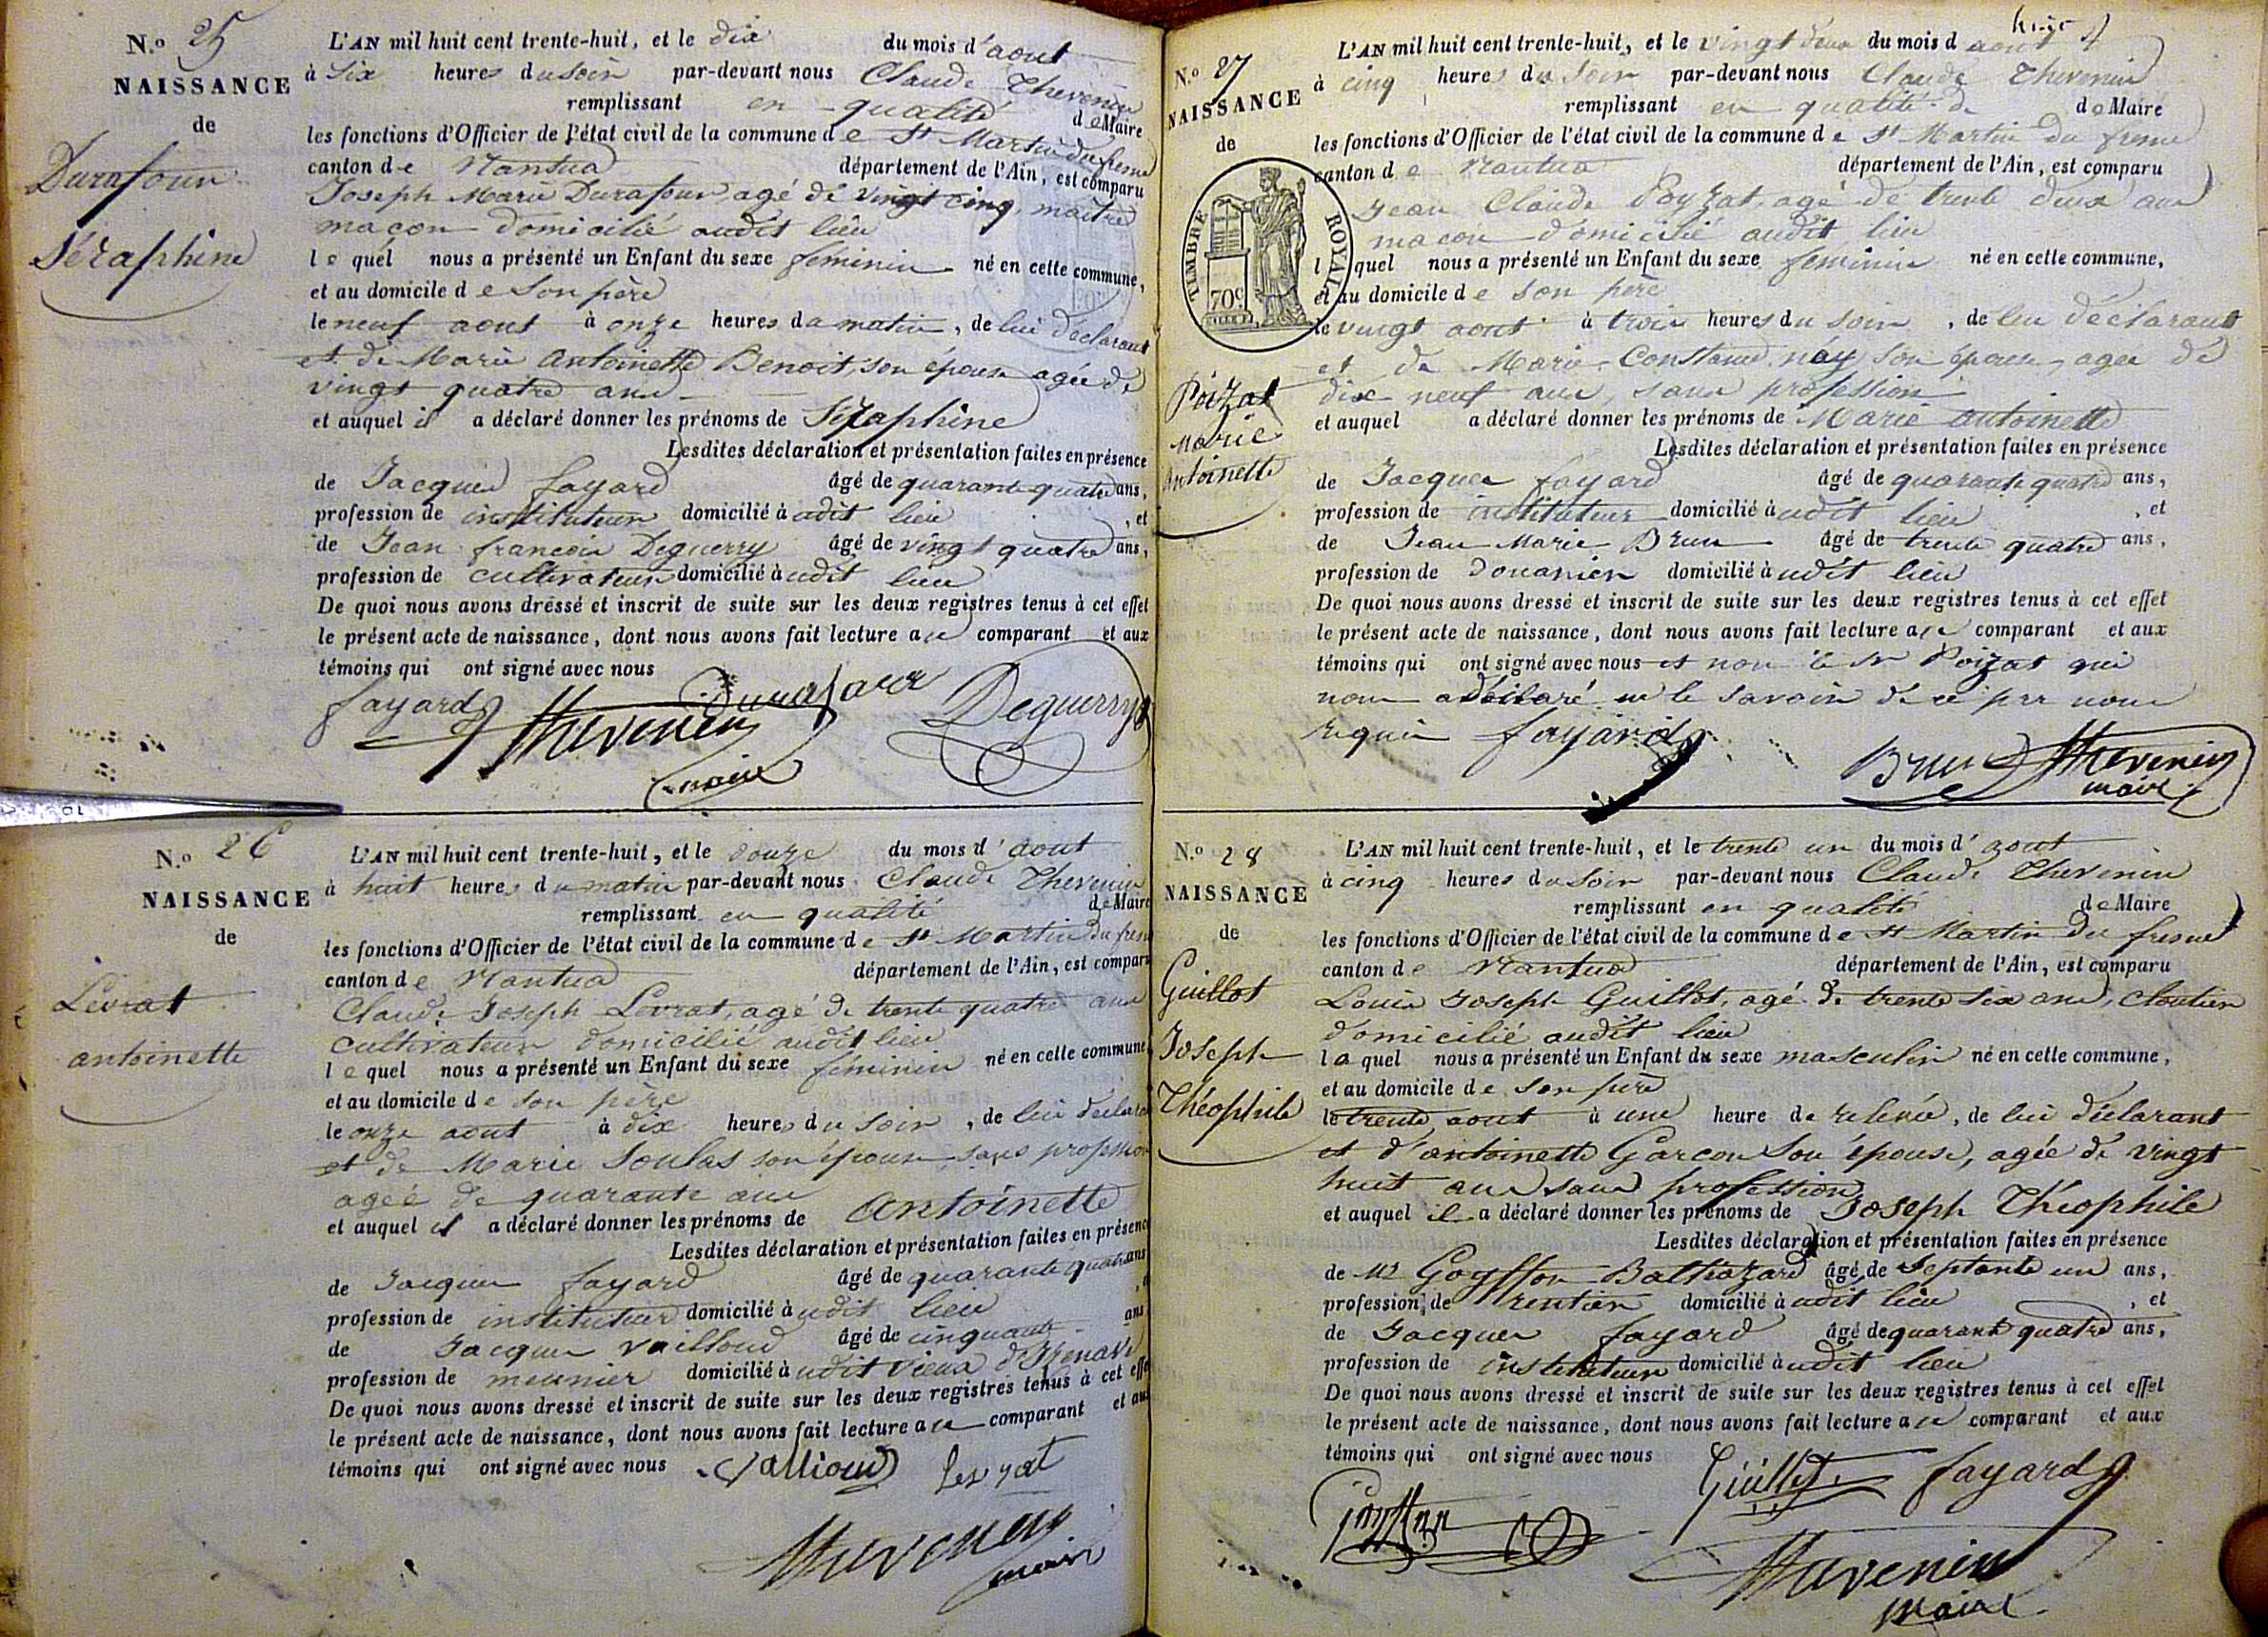 N.o 25
NAISSANCE
de
Durafour
Séraphine
L'AN mil huit cent trente-huit, et le dix du mois d'aout
à Six heures du soir par-devant nous Claude Thevenin
remplissant en qualité de Maire
les fonctions d'Officier de l'état civil de la commune de St Martin du fresne
canton de Nantua département de l'Ain, est comparu
Joseph Marie Durafour, agé de vingt cinq, maitre
macon domicilié audit lieu
lequel nous a présenté un Enfant du sexe féminin né en cette commune,
et au domicile de Son père
le neuf aout à onze heures du matin, de lui déclarant
et de Marie Antoinette Benoit, son épouse agée de
vingt quatre ans
et auquel il a déclaré donner les prénoms de Séraphine
Lesdites déclaration et présentation faites en présence
de Jacques fayard âgé de quarante quatre ans,
profession de instituteur domicilié à udit lieu, et
de Jean françois Deguerry âgé de vingt quatre ans,
profession de cultivateur domicilié à udit lieu
De quoi nous avons dressé et inscrit de suite sur les deux registres tenus à cet effet
le présent acte de naissance, dont nous avons fait lecture au comparant et aux
témoins qui ont signé avec nous
fayard Thevenin Durafour Deguerry
maire
N.o 26
NAISSANCE
de
Levrat
antoinette
L'AN mil huit cent trente-huit, et le douze du mois d'aout
à huit heures du matin par-devant nous Claude Thevenin
remplissant en qualité de Maire
les fonctions d'Officier de l'état civil de la commune de St Martin du fresn
canton de Nantua département de l'Ain, est comparu
Claude Joseph Levrat, agé de trente quatre ans
cultivateur domicilié audit lieu
lequel nous a présenté un Enfant du sexe féminin né en cette commune
et au domicile de son père
le onze aout à dix heures du soir, de lui déclarant
et de Marie Soulas son épouse, sans profession
agée de quarante ans
et auquel il a déclaré donner les prénoms de Antoinette
Lesdites déclaration et présentation faites en présence
de Jacques fayard âgé de quarante quatre ans
profession de instituteur domicilié à udit lieu
de Jacques Vailloud âgé de cinquante ans
profession de meunier domicilié à udit vieux d'Izenave
De quoi nous avons dressé et inscrit de suite sur les deux registres tenus à cet effe
le présent acte de naissance, dont nous avons fait lecture au comparant et aux
témoins qui ont signé avec nous Vallioud Levrat
Thevenin
maire
N.o 27
NAISSANCE
de
TIMBRE ROYAL
70c
Poizat
Marie
Antoinette
L'AN mil huit cent trente-huit, et le vingt deux du mois d aout
à cinq heures du soir par-devant nous Claude Thevenin
remplissant en qualité de de Maire
les fonctions d'Officier de l'état civil de la commune de St Martin du fresne
canton de Nantua département de l'Ain, est comparu
Jean Claude Poyzat, agé de trente deux ans
macon domicilié audit lieu
lquel nous a présenté un Enfant du sexe féminin né en cette commune,
et au domicile de son père
le vingt aout à trois heures du soir, de lui déclarant
et de Marie Constance néy son épouse, agée de
dix neuf ans, sans profession
et auquel a déclaré donner les prénoms de Marie antoinette
Lesdites déclaration et présentation faites en présence
de Jacques fayard âgé de quarante quatre ans,
profession de instituteur domicilié à udit lieu, et
de Jean Marie Brun âgé de trente quatre ans,
profession de Douanier domicilié à udit lieu
De quoi nous avons dressé et inscrit de suite sur les deux registres tenus à cet effet
le présent acte de naissance, dont nous avons fait lecture au comparant et aux
témoins qui ont signé avec nous et non le Sr Poizat qui
nous a déclaré ne le savoir de ce par nous
requis fayard
Brun Thevenin
maire
N.o 28
NAISSANCE
de
Guillot
Joseph
Théophile
L'AN mil huit cent trente-huit, et le trente un du mois d'aout
à cinq heures du Soir par-devant nous Claude Thevenin
remplissant en qualité de Maire
les fonctions d'Officier de l'état civil de la commune de St Martin du fresne
canton de Nantua département de l'Ain, est comparu
Louis Joseph Guillot, agé de trente six ans, cloutier
domicilié audit lieu
laquel nous a présenté un Enfant du sexe masculin né en cette commune,
et au domicile de son père
le trente aout à une heure de relevée, de lui déclarant
et d'antoinette Garcon Son épouse, agée de vingt
huit ans sans profession
et auquel il a déclaré donner les prénoms de Joseph Théophile
Lesdites déclaration et présentation faites en présence
de Mr Goyffon Balthazard âgé de Septante un ans,
profession de rentier domicilié à udit lieu, et
de Jacques fayard âgé de quarante quatre ans,
profession de instituteur domicilié à udit lieu
De quoi nous avons dressé et inscrit de suite sur les deux registres tenus à cet effet
le présent acte de naissance, dont nous avons fait lecture au comparant et aux
témoins qui ont signé avec nous
Guillot fayard
Goyffon
Thevenin
maire